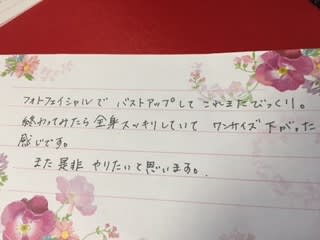 フォトフェイシャルで バストアップして これまたびっくり。
終わってみたら全身スッキリしていて ワンサイズ下がった
感じです。
また是非 やりたいと思います。